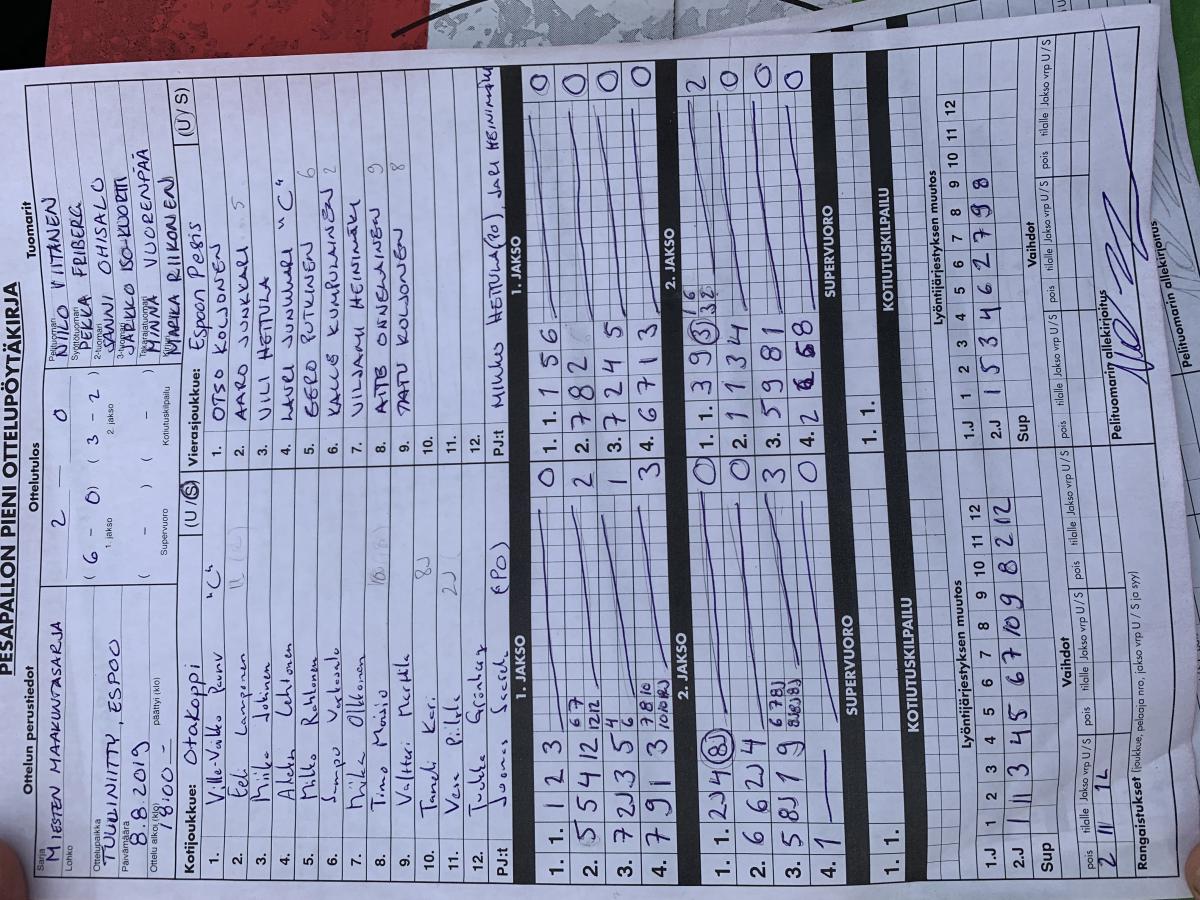 PESÄPALLON PIENI OTTELUPÖYTÄKIRJA
Ottelun perustiedot
Ottelutulos
Tuomarit
Sarja
MIESTEN MAAKUNTASARJA
Lohko
Ottelupaikka
TUULINIITTY, ESPOO
Päivämäärä
8.8.2019
Ottelu alkoi (klo)
1800 -
päättyi (klo)
2 — 0
( 6 - 0 ) ( 3 - 2 )
1. jakso
2. jakso
( - ) ( - )
Supervuoro
Kotiutuskilpailu
Pelituomari
NIILO VIITANEN
Syöttötuomari
PEKKA FRIBERG
2-tuomari
SANNI OHISALO
3-tuomari
JARKKO ISO-KUORTTI
Takarajatuomari
MINNA VUORENPÄÄ
MARIKA RIIKONEN
Kotijoukkue: Otakoppi (U/S)
1. Ville-Valko "C"
2. Eeli Lamponen
3. Miika Jokinen
4. Lehtonen
5. Mikko Rahkonen
6. Sampo
7. Miika Ollikainen
8. Timo Moisio
9. Valtteri Markkila
10. Taneli Keri 8J
11. Vesa Piilola 2J
12. Jukka Grönberg
PJ:t Joonas (PO)
Vierasjoukkue: Espoon Pesis (U/S)
1. OTSO KOLJONEN
2. AARO JUNKKARI 5
3. VILI HEITULA
4. LAURI JUNKKARI "C"
5. EERO PUTKINEN 6
6. KALLE KUMPULAINEN 2
7. VILJAMI HEINIMÄKI
8. ATTE ONNELAINEN 9
9. TATU KOLJONEN 8
10.
11.
12.
PJ:t MIKKO HEITULA (PO) JARI HEINIMÄKI
1. JAKSO
1. 1. 1 2 3 0
2. 5 5 4 12 6 7 12 12 2
3. 7 2J 3 5 4 6 1
4. 7 9 1 3 7 8 10 3
1. JAKSO
1. 1. 1 5 6 0
2. 7 8 2 0
3. 7 2 4 5 0
4. 6 7 1 3 0
2. JAKSO
1. 1. 2J 4 8J 0
2. 6 6 2J 4 0
3. 5 8J 1 9 6 7 8J 3
4. 1 0
2. JAKSO
1. 1. 3 9 3 1 6 3 2 2
2. 1 1 3 4 0
3. 5 9 8 1 0
4. 2 6 8 0
SUPERVUORO
1. 1.
SUPERVUORO
1. 1.
KOTIUTUSKILPAILU
KOTIUTUSKILPAILU
Lyöntijärjestyksen muutos
1.J 1 2 3 4 5 6 7 8 9 10 11 12
2.J 1 11 3 4 5 6 7 10 9 8 2 12
Sup
Lyöntijärjestyksen muutos
1.J 1 2 3 4 5 6 7 8 9 10 11 12
2.J 1 5 3 4 6 2 7 9 8
Sup
Vaihdot
pois tilalle Jakso vrp U/S pois tilalle Jakso vrp U/S pois tilalle Jakso vrp U/S
2 11 1L
Vaihdot
pois tilalle Jakso vrp U/S pois tilalle Jakso vrp U/S pois tilalle Jakso vrp U/S
Rangaistukset (joukkue, pelaaja nro, jakso vrp U/S ja syy)
Pelituomarin allekirjoitus
Pelituomarin allekirjoitus